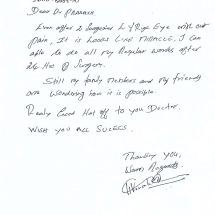 Dear Dr
Even after 2 Surgeries Eye with out
Pain, It is Looks Like MIRACLE. I can
able to do all my Regular works after
24 Hrs of Surgery.
Still my family Members and my friends
are wondering how is is possible.
Really Great Hat off to you Doctor.
Wish you ALL SUCESS.
Thanking you,
Warm Regards